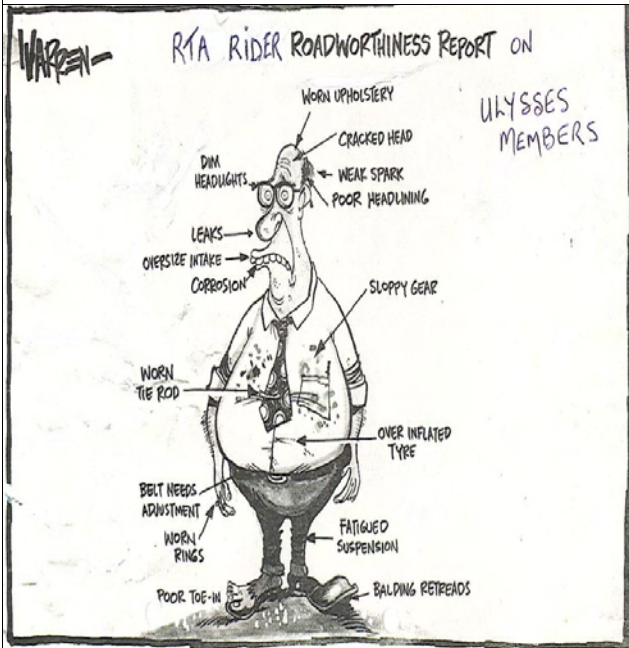 WARREN
RTA RIDER ROADWORTHINESS REPORT ON
ULYSSES
MEMBERS
WORN UPHOLSTERY
CRACKED HEAD
DIM
HEADLIGHTS
WEAK SPARK
POOR HEADLINING
LEAKS
OVERSIZE INTAKE
CORROSION
SLOPPY GEAR
WORN
TIE ROD
OVER INFLATED
TYRE
BELT NEEDS
ADJUSTMENT
WORN
RINGS
FATIGUED
SUSPENSION
POOR TOE-IN
BALDING RETREADS